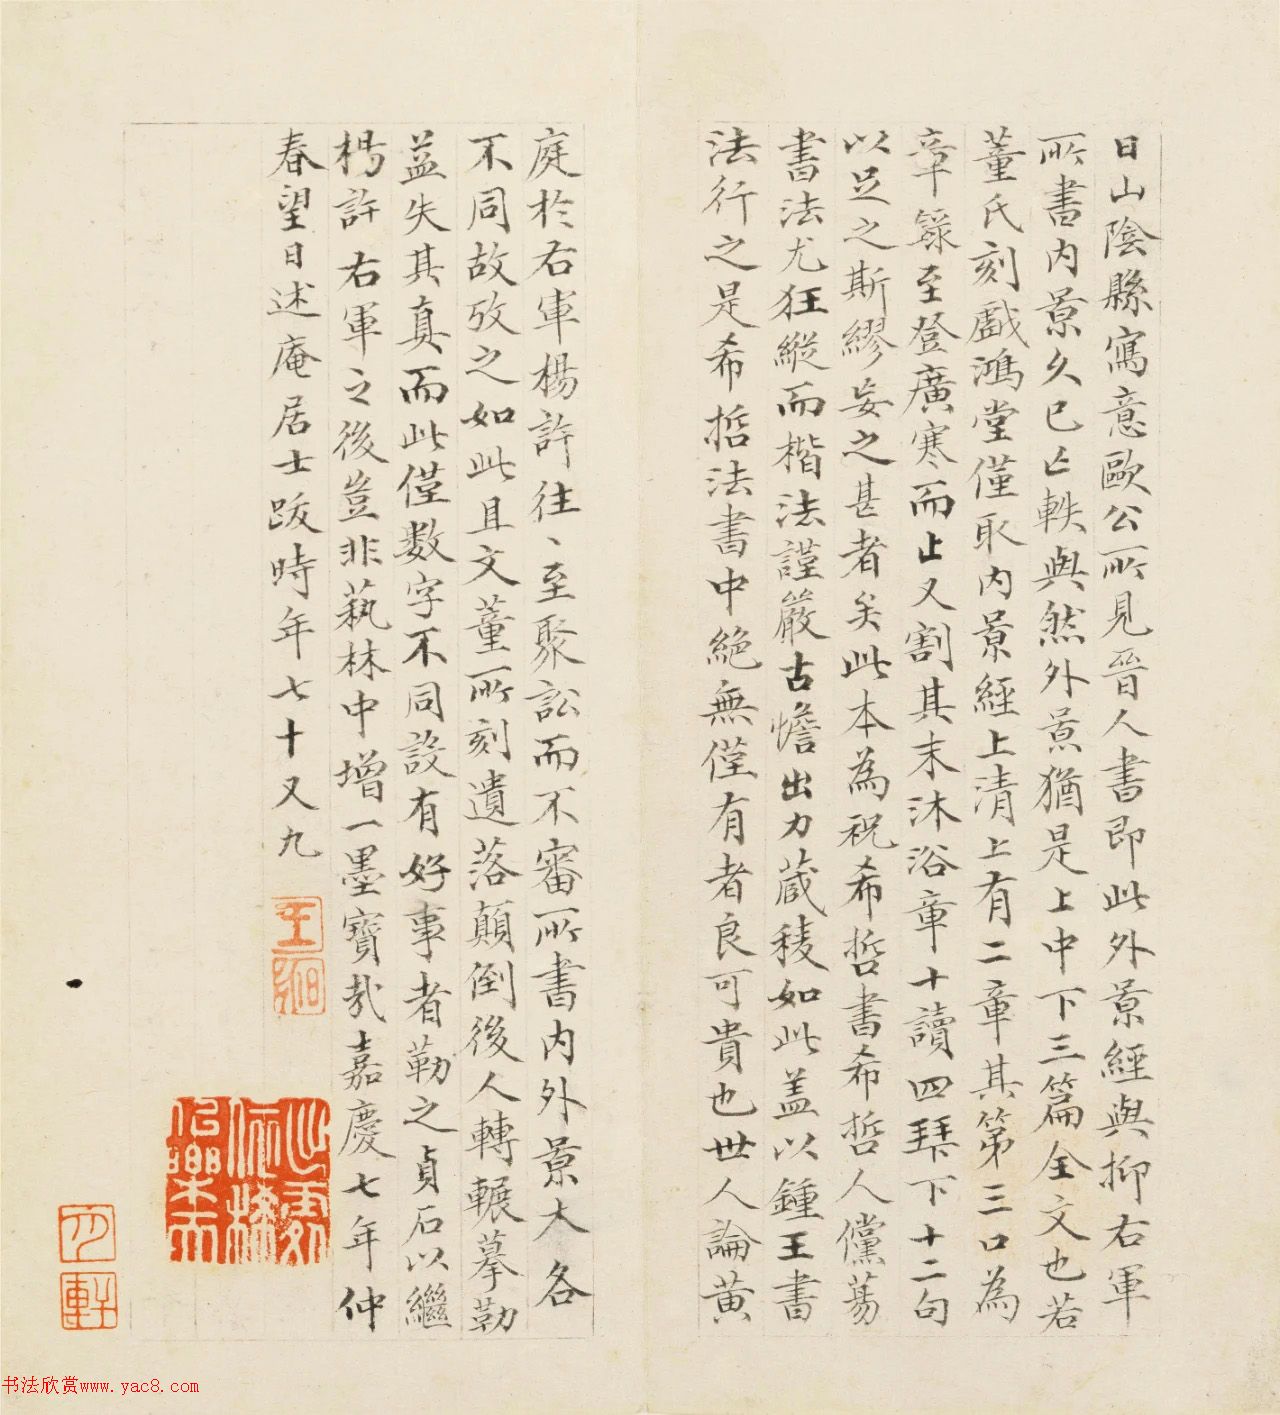 日山陰縣寫意歐公所見晉人書即此外景經與抑右軍
所書内景久已亡軼與然外景猶是上中下三篇全文也若
董氏刻戲鴻堂僅取内景經上清上有二章其第三口為
章籙至登廣寒而止又割其末沐浴章十讀四拜下十二句
以足之斯繆妄之甚者矣此本為祝希哲書希哲人儻蕩
書法尤狂縱而楷法謹嚴古憺出力藏稜如此盖以鍾王書
法行之是希哲法書中絶無僅有者良可貴也世人論黄
庭於右軍楊許往〻至聚訟而不審所書内外景大各
不同故攷之如此且文董所刻遺落顛倒後人轉輾摹勒
益失其真而此僅數字不同設有好事者勒之貞石以繼
楊許右軍之後豈非蓺林中增一墨寶哉嘉慶七年仲
春望日述庵居士跋時年七十又九
书法欣赏www.yac8.com